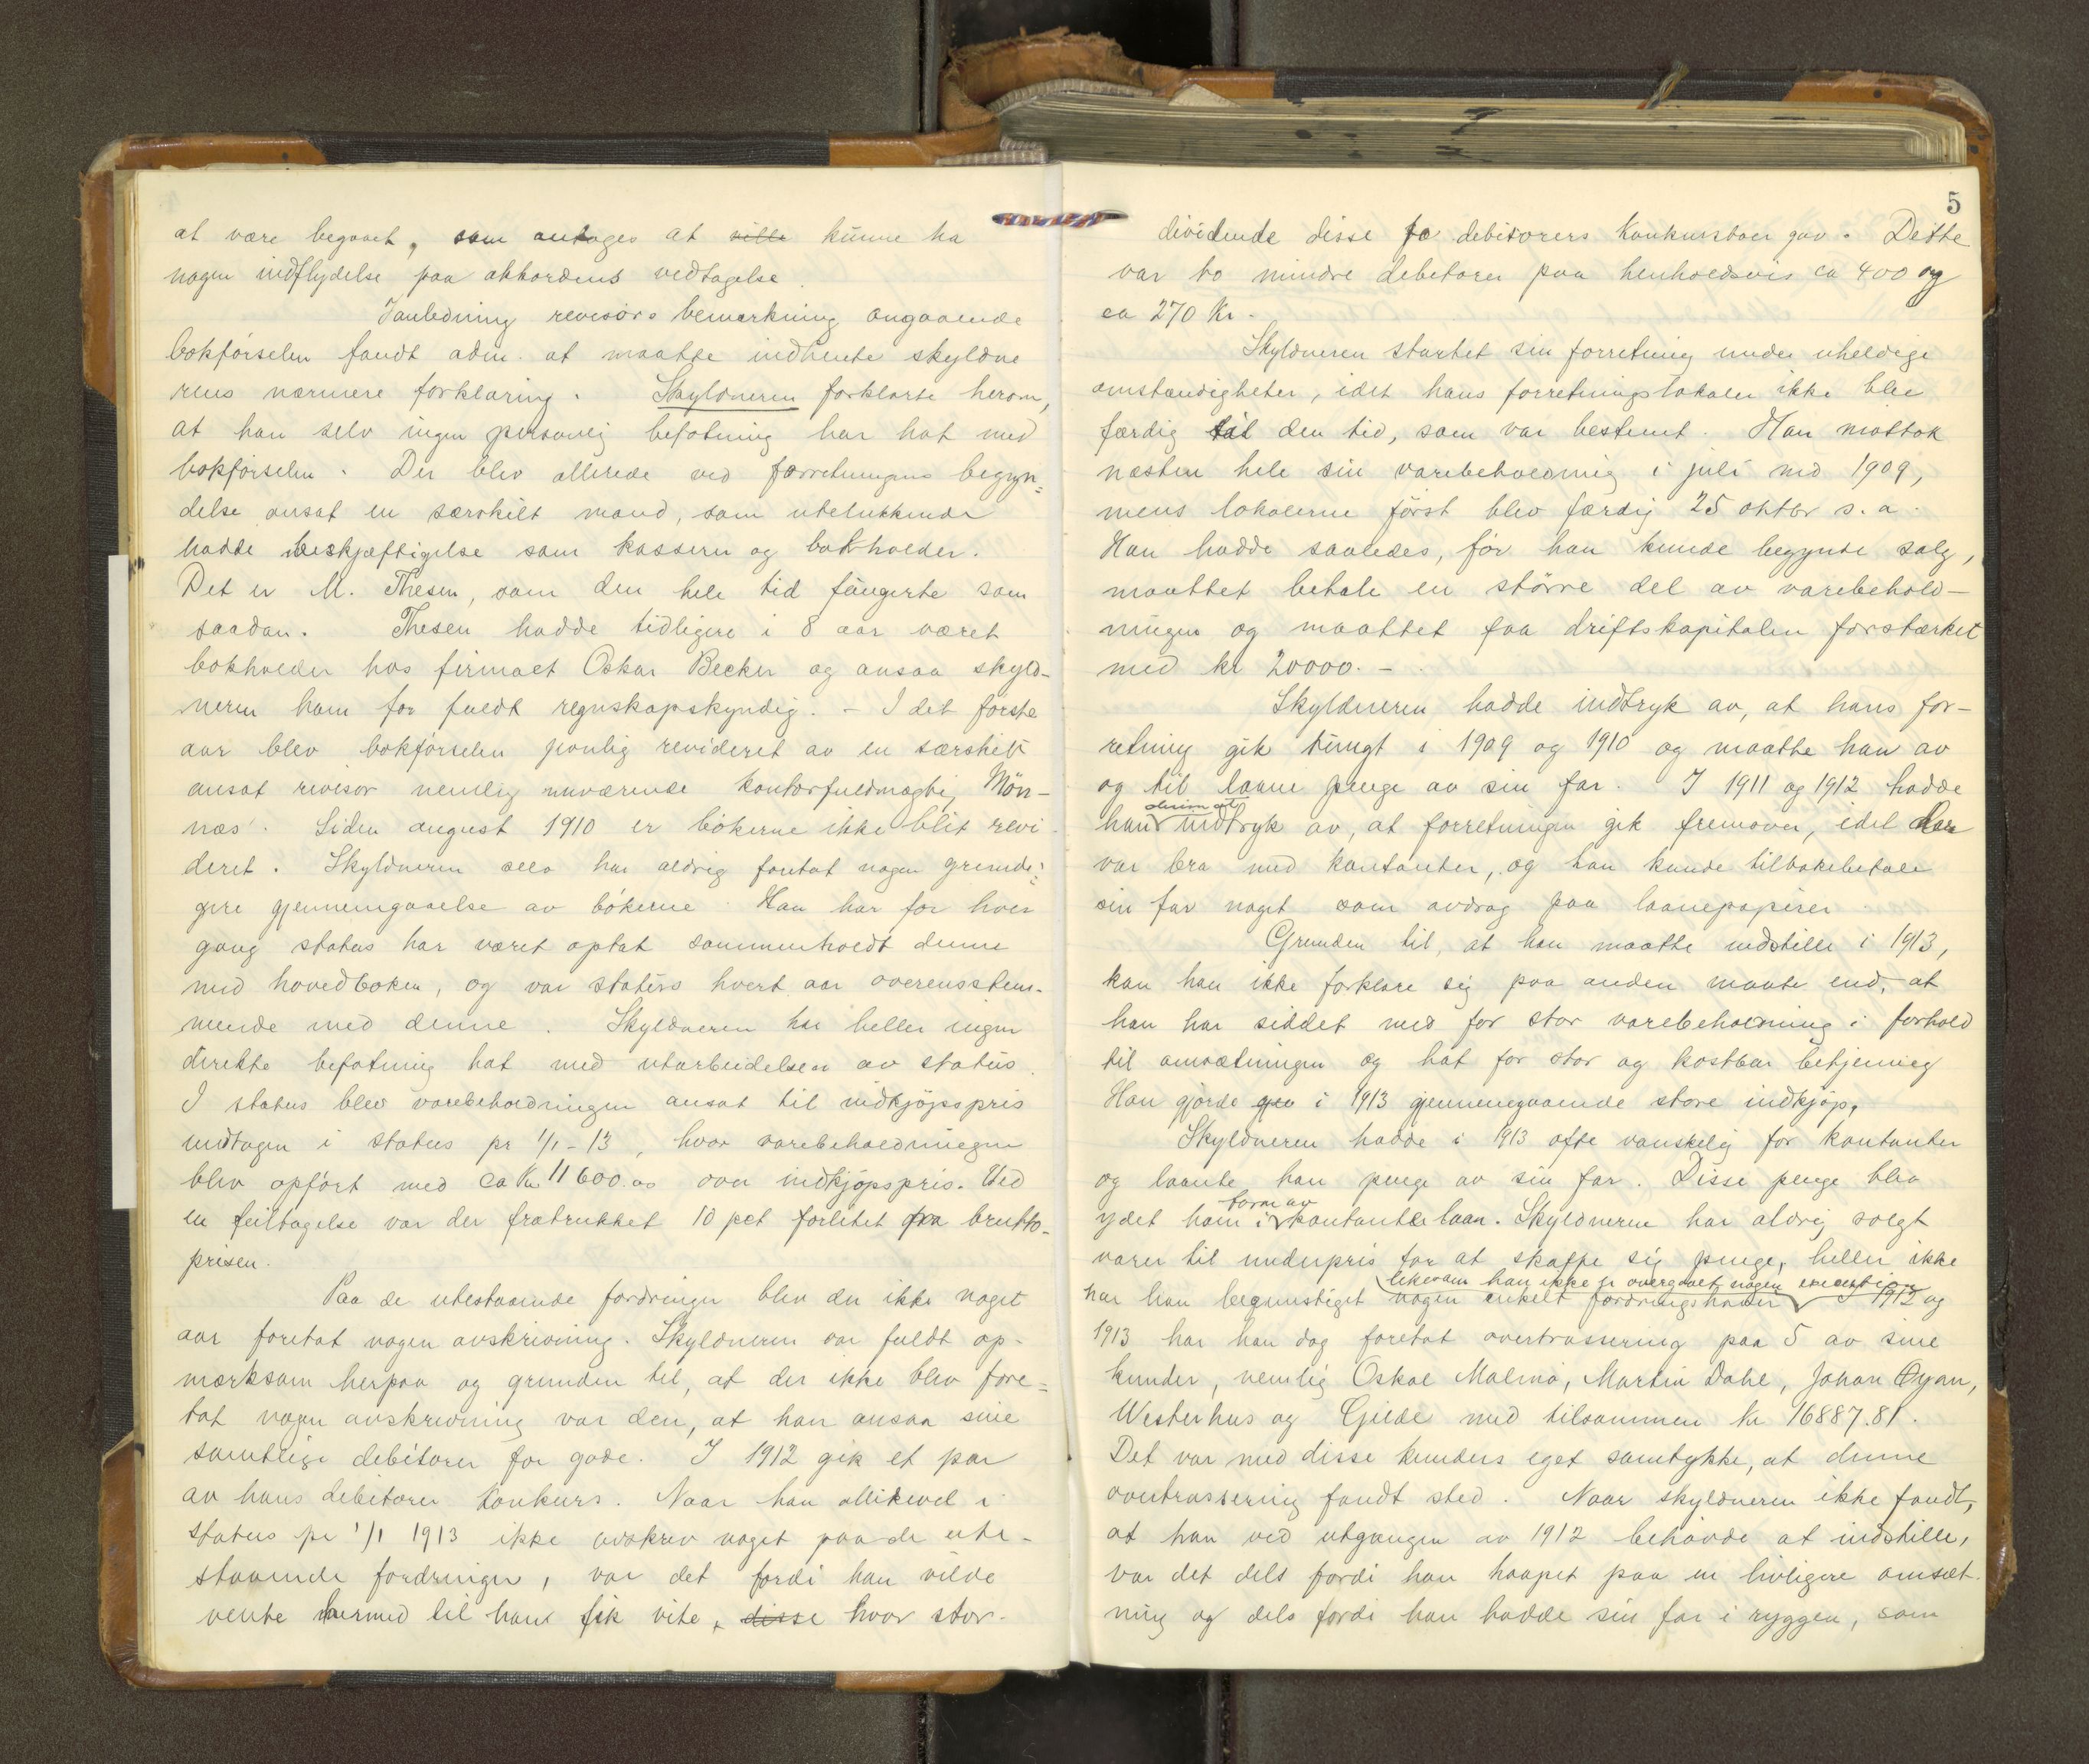 at være begaaet, som antages at ville kunne ha
nogen indflydelse paa akkordens vedtagelse.
Ianledning revisors bemerkning angaaende
bokførselen fandt adm. at maatte indhente skyldne
rens nærmere forklaring. Skyldneren forklarte herom,
at han selv ingen personlig befatning har hat med
bokførselen. Der blev allerede ved forretningens begyn=
delse ansat en særskilt mand, som utelukkende
hadde beskjæftigelse som kasserer og bokholder.
Det er M. Thesen, som den hele tid fungerte som
saadan. Thesen hadde tidligere i 8 aar været
bokholder hos firmaet Oskar Becker og ansaa skyld-
neren ham for fuldt regnskapskyndig. - I det første
aar blev bokførselen jevnlig revideret av en særskilt
ansat revisor nemlig nuværende kontorfuldmægtig Møn-
næs. Siden august 1910 er bøkerne ikke blit revi-
deret. Skyldneren selv har aldrig foretat nogen grundi=
gere gjennemgaaelse av bøkerne. Han har for hver
gang status har været optat sammenholdt denne
med hovedboken, og var status hvert aar overensstem-
mende med denne. Skyldneren har heller ingen
direkte befatning hat med utarbeidelsen av status.
I status blev varebeholdningen ansat til indkjøpspris
undtagen i status pr 1/1-13, hvor varebeholdningen
blev opført med ca Kr. 11600.00 over indkjøpspris. Ved
en feiltagelse var der fratrukket 10 pct forlitet fra brutto-
prisen.
Paa de utestaaende fordringer blev der ikke noget
aar foretat nogen avskrivning. Skyldneren var fuldt op-
mærksom herpaa og grunden til, at der ikke blev fore=
tat nogen avskrivning var den, at han ansaa sine
samtlige debitorer for gode. I 1912 gik et par
av hans debitorer konkurs. Naar han allikevel i
status pr 1/1 1913 ikke avskrev noget paa de ute-
staaende fordringer, var det fordi han vilde
vente hermed til hans fik vite, disse hvor stor
5
dividende disse to debitorers konkursboer gav. Dette
var to mindre debitorer paa henholdsvis ca 400 og
ca 270 Kr.
Skyldneren startet sin forretning under uheldige
omstændigheter, idet hans forretningslokaler ikke blev
færdig til den tid, som var bestemt. Han mottok
næsten hele sin varebeholdning i juli md 1909,
mens lokalerne først blev færdig 25 oktbr s. a.
Han hadde saaledes, før han kunde begynde salg,
maattet betale en større del av varebehold-
ningen og maattet faa driftskapitalen forstærket
med kr 20000.-
Skyldneren hadde indtryk av, at hans for-
retning gik tungt i 1909 og 1910 og maatte han av
og til laane penge av sin far. I 1911 og 1912 hadde
derimot
han indtryk av, at forretningen gik fremover, idet der
var bra med kontanter, og han kunde tilbakebetale
sin far noget som avdrag paa laanepapirer.
Grunden til, at han maatte indstille i 1913,
kan han ikke forklare sig paa anden maate end, at
han har siddet med for stor varebeholdning i forhold
til omsætningen og hat for stor og kostbar betjening
Han gjorde i 1913 gjennemgaaende store indkjøp.
Skyldneren hadde i 1913 ofte vanskelig for kontanter
og laante han penge av sin far. Disse penge blev
form av
ydet ham i kontantlaan. Skyldneren har aldrig solgt
varer til underpris for at skaffe sig penge, heller ikke
likesom han ikke er overgaaet nogen execution
har han begunstiget nogen enkelt fordringshaver I 1912 og
1913 har han dog foretat overtrassering paa 5 av sine
kunder, nemlig Oskar Malmo, Martin Dahl, Johan Øyan,
Westerhus og Gilde med tilsammen kr 16887.81.
Det var med disse kunders eget samtykke, at denne
overtrassering fandt sted. Naar skyldneren ikke fandt,
at han ved utgangen av 1912 behøvde at indstille,
var det dels fordi han haapet paa en livligere omsæt-
ning og dels fordi han hadde sin far i ryggen, som